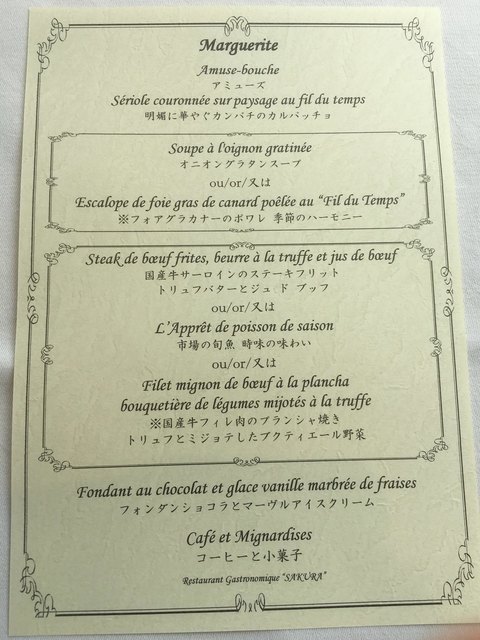 Marguerite
Amuse-bouche
アミューズ
Sériole couronnée sur paysage au fil du temps
明媚に華やぐカンパチのカルパッチョ
Soupe à l'oignon gratinée
オニオングラタンスープ
ou/or/又は
Escalope de foie gras de canard poêlée au "Fil du Temps"
※フォアグラカナーのポワレ 季節のハーモニー
Steak de bœuf frites, beurre à la truffe et jus de bœuf
国産牛サーロインのステーキフリット
トリュフバターとジュ ド ブッフ
ou/or/又は
L'Apprêt de poisson de saison
市場の旬魚 時味の味わい
ou/or/又は
Filet mignon de bœuf à la plancha
bouquetière de légumes mijotés à la truffe
※国産牛フィレ肉のプランシャ焼き
トリュフとミジョテしたブクティエール野菜
Fondant au chocolat et glace vanille marbrée de fraises
フォンダンショコラとマーヴルアイスクリーム
Café et Mignardises
コーヒーと小菓子
Restaurant Gastronomique "SAKURA"